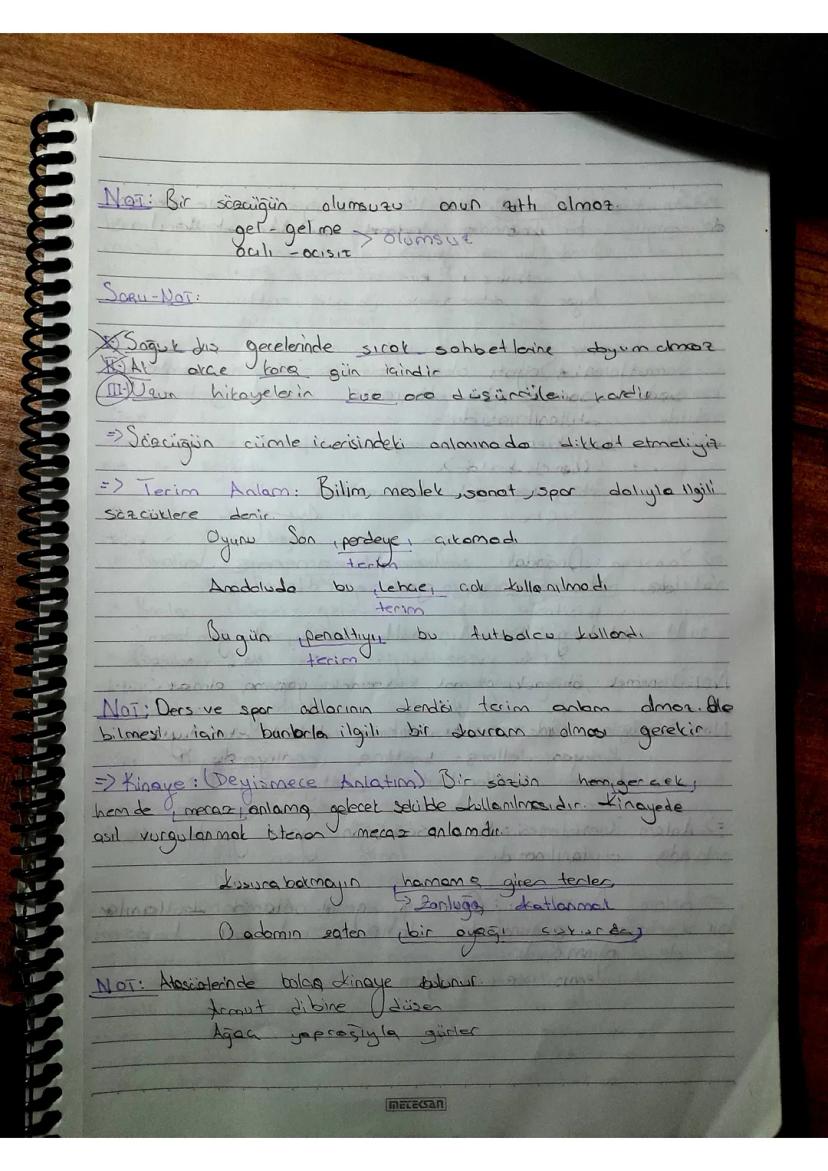 NOT: Bir sözcüğün olumsuzu onun zıttı olmaz.
gel - gelme
acılı - acısız > olumsuz
Soru-Not:
I) Soğuk kış gecelerinde sıcak sohbetlerine doyum olmaz
II) Ak akçe kara gün içindir
III) Uzun hikayelerin kısa ara düşünürleri vardır
=> Sözcüğün cümle içerisindeki anlamınada dikkat etmeliyiz
=> Terim Anlam: Bilim, meslek, sanat, spor dalıyla ilgili
sözcüklere denir
Oyunu Son perdeye çıkamadı
terim
Anadoluda bu Lehçe, çok kullanılmadı
terim
Bugün penaltıyı bu futbolcu kullandı
terim
NOT: Ders ve spor adlarının kendisi terim anlam olmaz. Ola
bilmesi için bunlarla ilgili bir kavram olması gerekir.
=> Kinaye: (Deyişmece Anlatım) Bir sözün hem gerçek,
hemde mecaz anlama gelecek şekilde kullanılmasıdır. Kinayede
asıl vurgulanmak istenen mecaz anlamdır.
Kusura bakmayın hamama giren terler
> Zorluğa katlanmak
O adamın zaten bir ayağı çukurda
NOT: Atasözlerinde bolca kinaye bulunur.
Armut dibine düşer
Ağaç yaprağıyla gürler
MELEKSAN